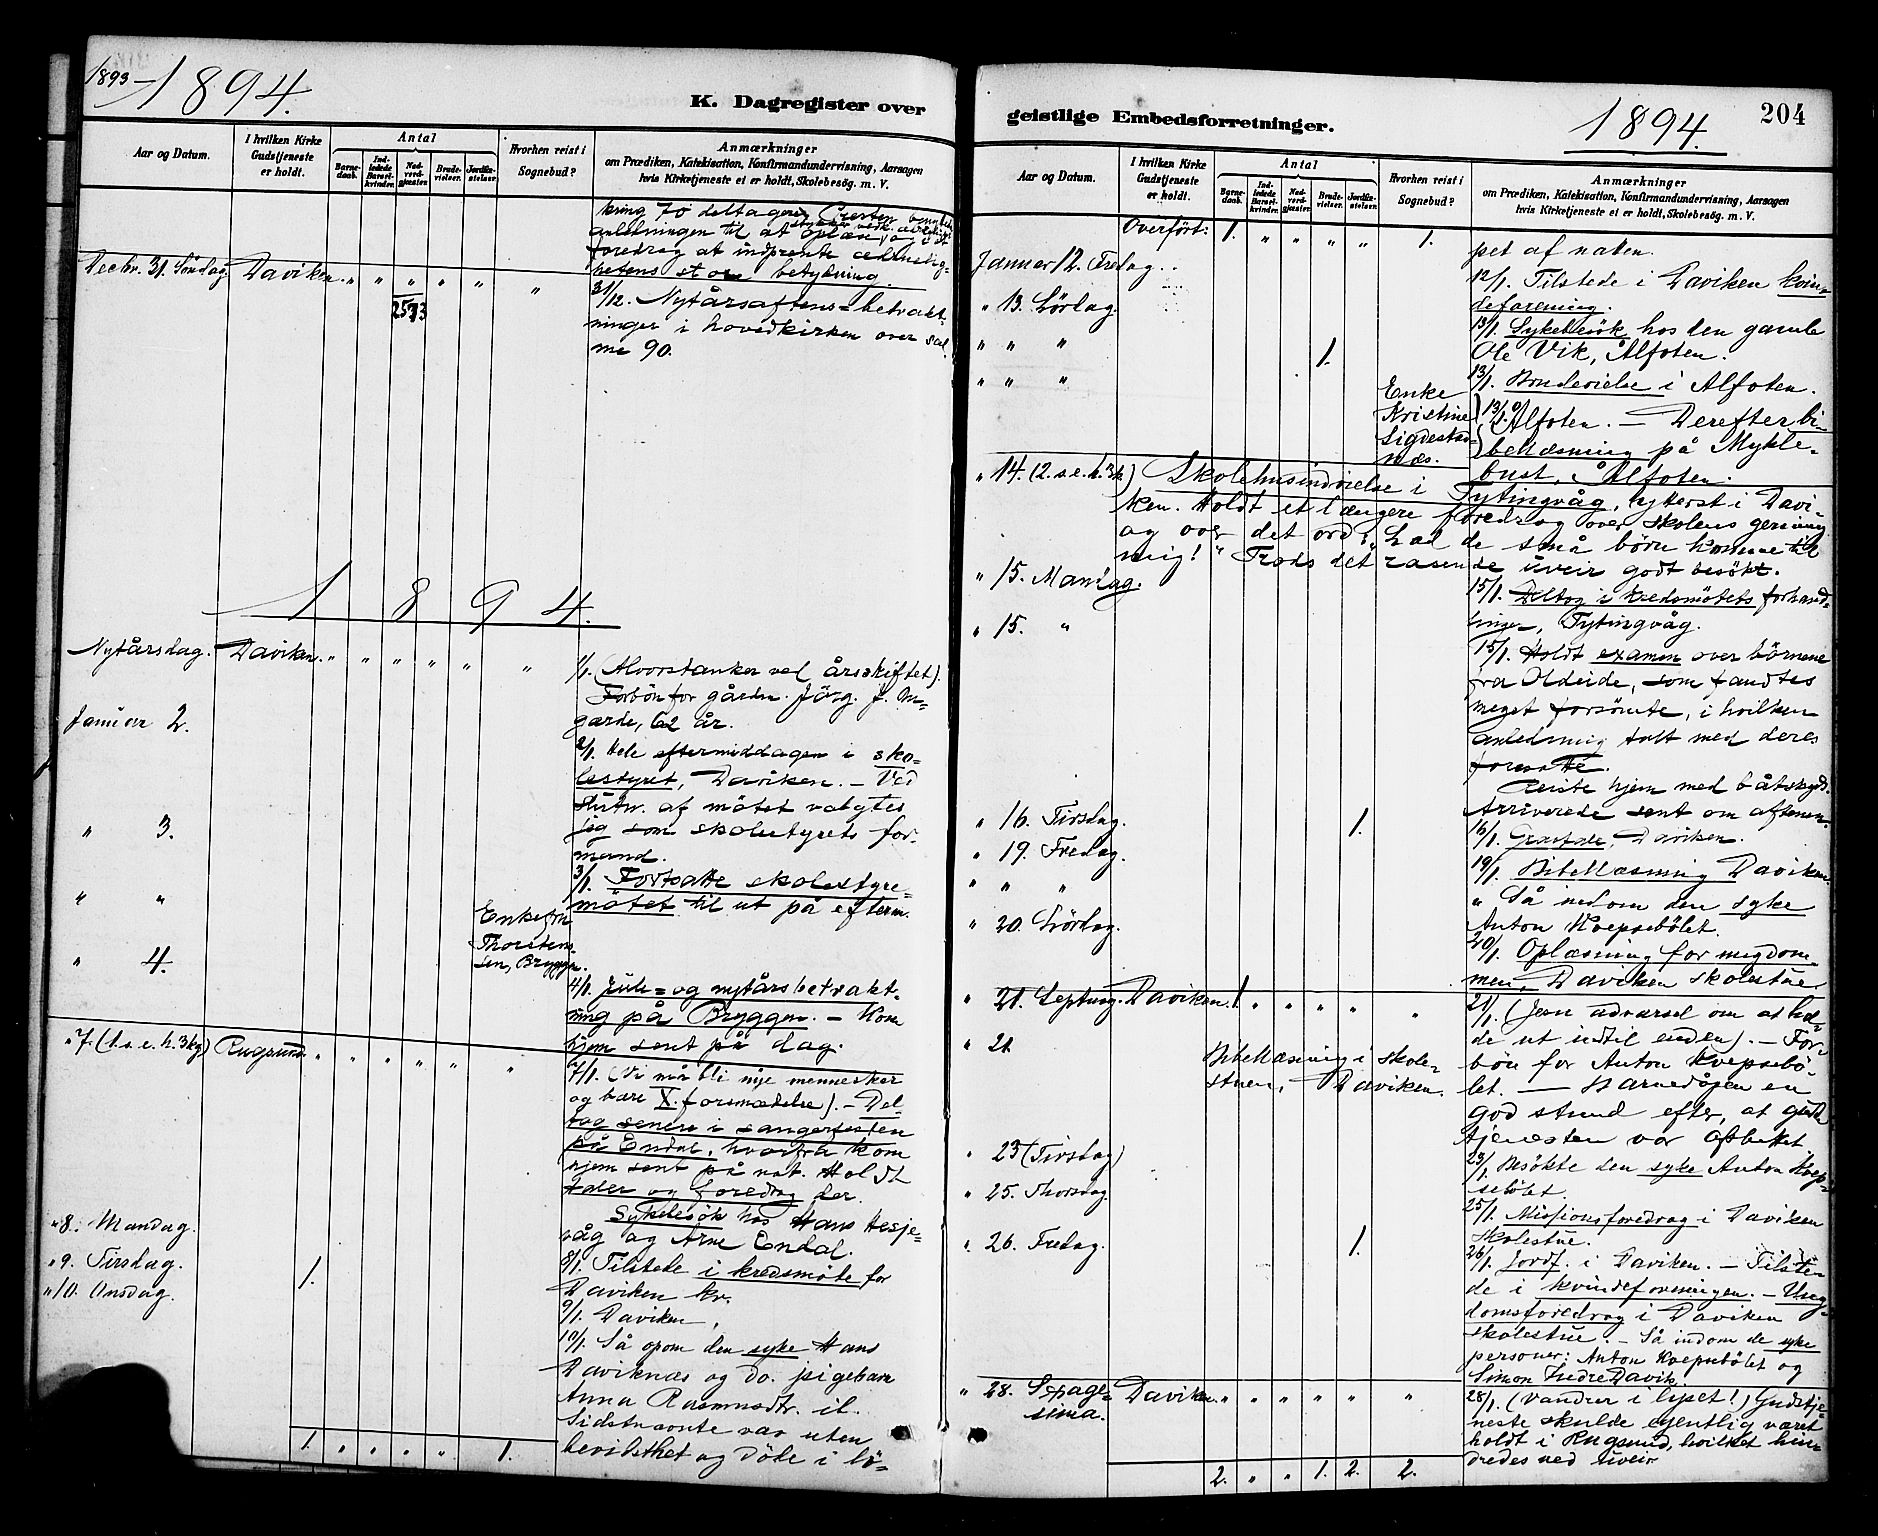 1893-1894.
K. Dagregister over
Aar og Datum.
I hvilken Kirke Gudstjeneste er holdt.
Antal
Barnedaab.
Indledede Barselkvinder.
Nadverdgjæster.
Brudevielser.
Jordfæstelser.
Hvorhen reist i Sognebud?
Anmærkninger
om Prædiken, Katekisation, Konfirmandundervisning, Aarsagen
hvis Kirketjeneste ei er holdt, Skolebesög. m. V.
kring 70 deltagere. Presten benyttede
anledningen til at
foredrag at indprente
hetens store betydning.
Decbr. 31. Söndag. Daviken. " " " " " "
2573
31/12. Nytårsaftens-betrakt-
ninger i hovedkirken over sal-
me 90.
1894.
Nytårsdag. Daviken. " " " " " "
1/1. (Alvorstanker ved årsskiftet).
Forbön for gårdm. Jörg. J. M-
gærde, 62 år.
Januar 2.
2/1. Hele eftermiddagen i sko-
lestyret, Daviken. – Ved
slutn. af mötet valgtes
jeg som skolestyrets for-
mand.
" 3.
3/1. Fortsatte skolestyre-
mötet til ut på efterm.
" "
Enkefru
Thorsten-
sen, Bryggen.
" 4.
4/1. Jule- og nytårsbetrakt-
ning på Bryggen. – Kom
hjem sent på dag.
" 7. (1. s. e. h. 3 kg) Rugsund. " " " " " "
7/1. (Vi må bli nye mennesker
og bære X. forsmædelse). – Del-
tog senere i sangerfesten
på Endal, hvorfra kom
hjem sent på nat. Holdt
taler og foredrag der.
Sykebesök hos Hans Hesje-
våg og Arne Endal.
" 8. Mandag.
8/1. Tilstede i kredsmöte for
Daviken kr.
" 9. Tirsdag. 1.
9/1. Daviken,
" 10. Onsdag.
10/1. Så opom den syke Hans
Daviknæs og do. pigebarn
Anna Rasmusdtr. ib.
Sidstnævnte var uten
bevidsthet og döde i lö-
1. " " " " 1.
geistlige Embedsforretninger.
1894.
204
Aar og Datum.
I hvilken Kirke Gudstjeneste er holdt.
Antal
Barnedaab.
Indledede Barselkvinder.
Nadverdgjæster.
Brudevielser.
Jordfæstelser.
Hvorhen reist i Sognebud?
Anmærkninger
om Prædiken, Katekisation, Konfirmandundervisning, Aarsagen
hvis Kirketjeneste ei er holdt, Skolebesög. m. V.
Overfört: 1. " " " " 1.
pet af natten.
Januar 12. Fredag.
12/1. Tilstede i Daviken kvin-
deforening.
" 13. Lördag.
13/1. Sykebesök hos den gamle
Ole Vik, Ålfoten.
" " " 1.
13/1. Brudevielse i Ålfoten.
" " "
Enke
Kristine
Sigdestad-
næs.
13/1. Ålfoten. – Derefter bi-
bellæsning på Mykle-
bust, Ålfoten.
" 14. (2. s. e. h. 3 k) Skolehusindvielse i Tytingvåg, ytterst i Davi-
ken. Holdt et længere foredrag over skolens gerning
og over det ord: „Lad de små börn komme til
mig!“ Trods det rasende uveir godt besökt.
" 15. Mandag.
15/1. Deltog i kredsmötets forhand-
linger, Tytingvåg.
" 15. "
15/1. Holdt examen over börnene
fra Oldeide, som fandtes
meget forsömte, i hvilken
anledning talt med deres
foresatte.
Reiste hjem med båtskyds.
Arriverede sent om aftenen.
" 16. Tirsdag. 1.
16/1. Gravtale, Daviken.
" 19. Fredag.
19/1. Bibellæsning Daviken.
" " "
" Så nedom den syke
Anton Kvepsebölet.
" 20. Lördag.
20/1. Oplæsning for ungdom-
men, Daviken skolestue.
" 21. Septuag. Daviken. 1. " " " " "
21/1. (Jesu advarsel om at hol-
de ut indtil enden). – For-
bön for Anton Kvepsebö-
let. – Barnedåpen en
god stund efter, at guds-
tjenesten var afbrukt.
" 21.
Bibellæsning i skole-
stuen, Daviken.
" 23 (Tirsdag)
23/1. Besökte den syke Anton Kvep-
sebölet.
" 25. Thorsdag.
25/1. Missionsforedrag i Daviken
skolestue.
" 26. Fredag. 1.
26/1. Jordf. i Daviken. – Tilste-
de i kvindeforeningen. – Ung-
domsforedrag i Daviken
skolestue. – Så indom de syke
personer: Anton Kvepsebölet og
Simon Indre Davik.
" 28. Sexage-
sima. Daviken. " " " " " "
28/1. (Vandrer i lyset!) Gudstje-
neste skulde egentlig været
holdt i Rugsund, hvilket hin-
dredes ved uveir
2. " " 1. 2. 2.